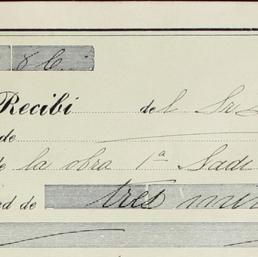 86.
Recibí del Sr.
de
de la obra 1ª Nadi
d de tres mi